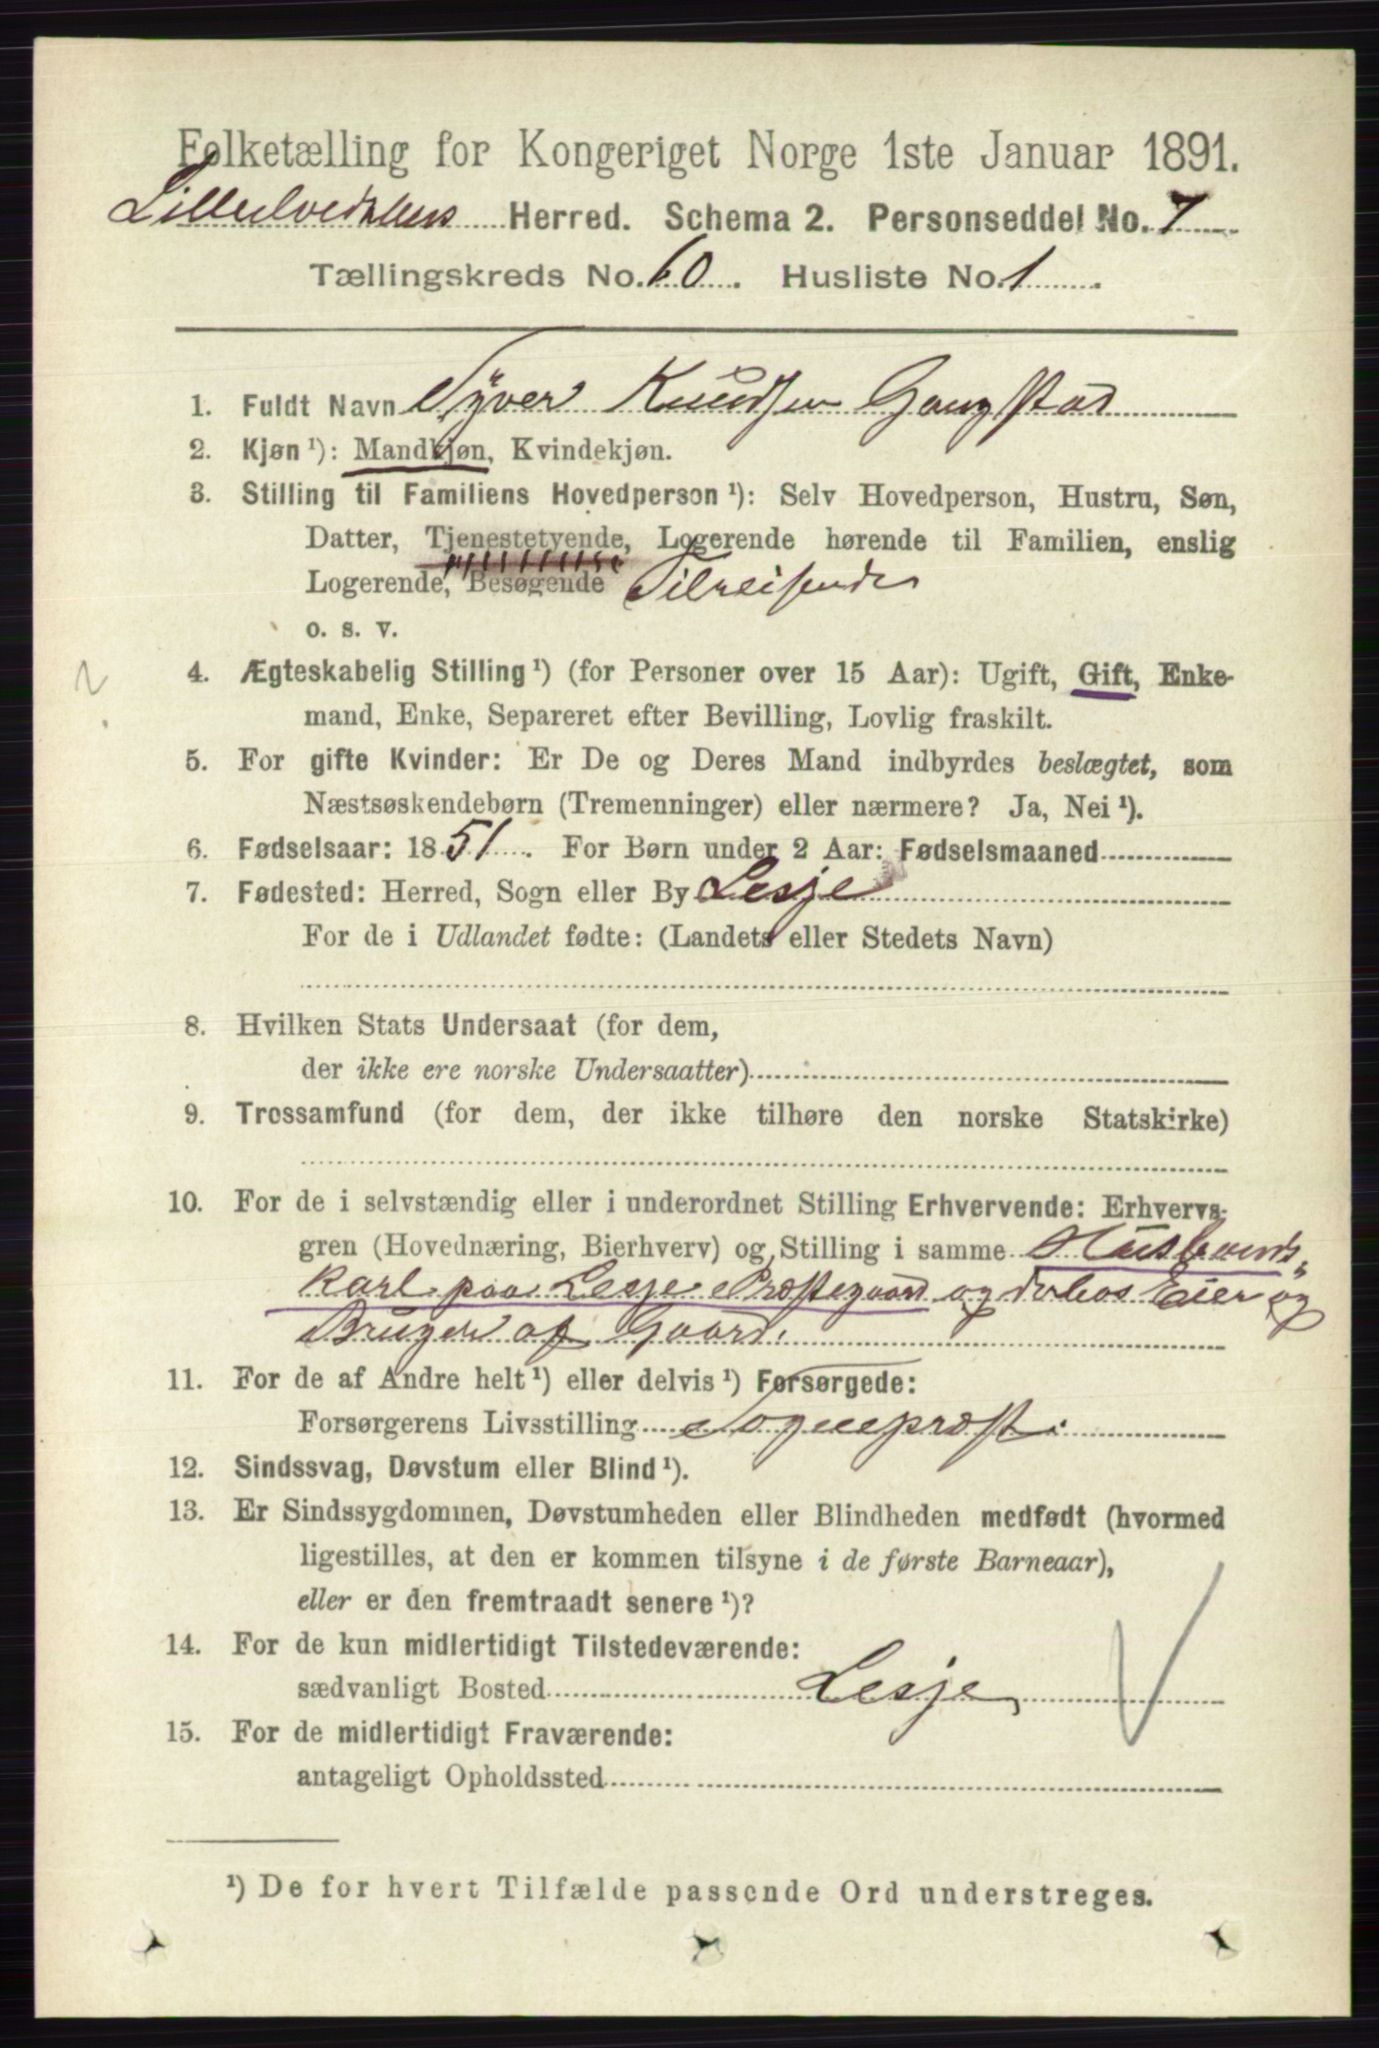 Folketælling for Kongeriget Norge 1ste Januar 1891.
Lilleelvedalens Herred. Schema 2. Personseddel No. 7
Tællingskreds No. 10. Husliste No. 1.
1. Fuldt Navn Syver Knudsen Gangstad
2. Kjøn ¹): Mandkjøn, Kvindekjøn.
3. Stilling til Familiens Hovedperson ¹): Selv Hovedperson, Hustru, Søn,
Datter, Tjenestetyende, Logerende hørende til Familien, enslig
Logerende, Besøgende Tilreisende
o. s. v.
2
4. Ægteskabelig Stilling ¹) (for Personer over 15 Aar): Ugift, Gift, Enke-
mand, Enke, Separeret efter Bevilling, Lovlig fraskilt.
5. For gifte Kvinder: Er De og Deres Mand indbyrdes beslægtet, som
Næstsøskendebørn (Tremenninger) eller nærmere? Ja, Nei ¹).
6. Fødselsaar: 1851. For Børn under 2 Aar: Fødselsmaaned
7. Fødested: Herred, Sogn eller By Lesje
For de i Udlandet fødte: (Landets eller Stedets Navn)
8. Hvilken Stats Undersaat (for dem,
der ikke ere norske Undersaatter)
9. Trossamfund (for dem, der ikke tilhøre den norske Statskirke)
10. For de i selvstændig eller i underordnet Stilling Erhvervende: Erhvervs-
gren (Hovednæring, Bierhverv) og Stilling i samme Husbonds-
karl paa Lesje Præstegaard og derhos Eier og
Bruger af Gaard.
11. For de af Andre helt ¹) eller delvis ¹) Forsørgede:
Forsørgerens Livsstilling Sognepræst.
12. Sindssvag, Døvstum eller Blind ¹).
13. Er Sindssygdommen, Døvstumheden eller Blindheden medfødt (hvormed
ligestilles, at den er kommen tilsyne i de første Barneaar),
eller er den fremtraadt senere ¹)?
14. For de kun midlertidigt Tilstedeværende:
sædvanligt Bosted Lesje,
15. For de midlertidigt Fraværende:
antageligt Opholdssted
¹) De for hvert Tilfælde passende Ord understreges.